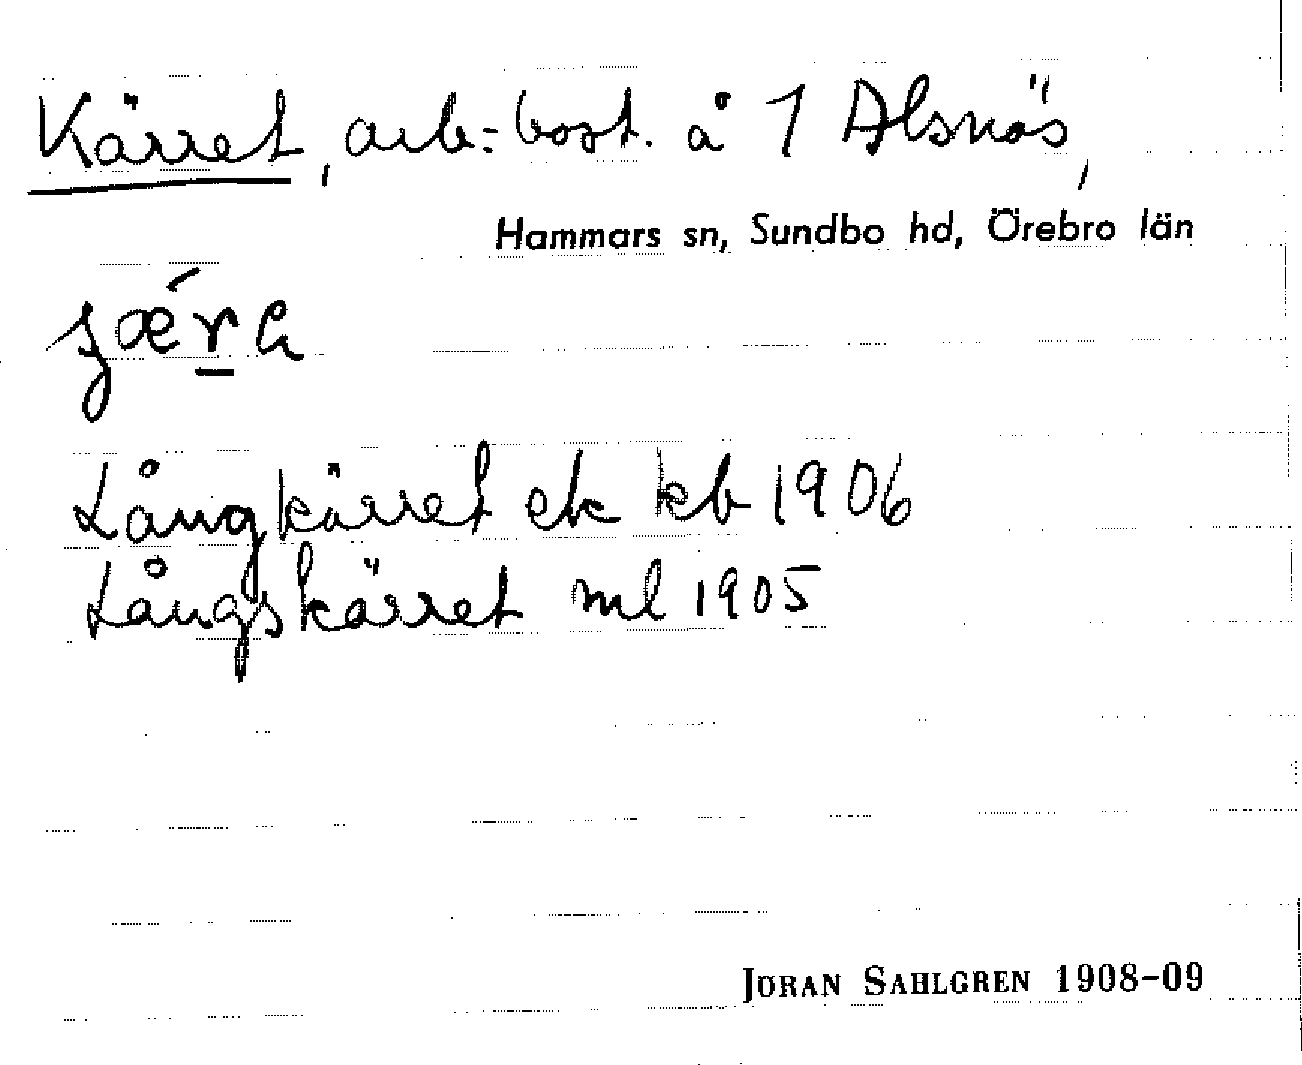 Kärret, arb.-bost. å 1 Alsnäs,
Hammars sn, Sundbo hd, Örebro län
Långkärret ek kb 1906
Långskärret ml 1905
JÖRAN SAHLGREN 1908-09